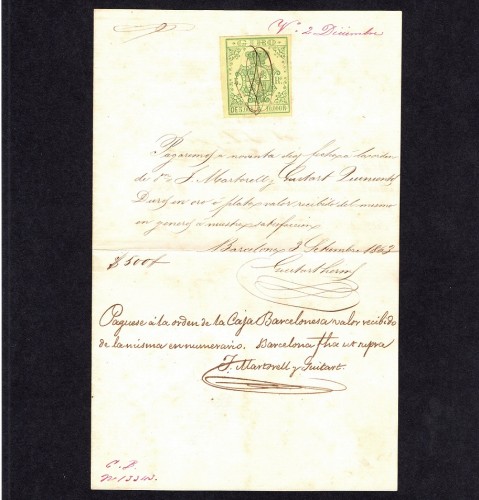 Vº 2 Diciembre
Pagaremos a noventa dias fecha a la orden
de los J. Martorell y Guitart Quinientos
Duros en oro ó plata valor recibido del mismo
en generos a nuestra satisfaccion
Barcelona 3 Setembre 1862
$ 500 f
Guitart herm
Paguese á la orden de la Caja Barcelonesa valor recibido
de la misma en numerario. Barcelona fha ut supra
J. Martorell y Guitart.
C. P.